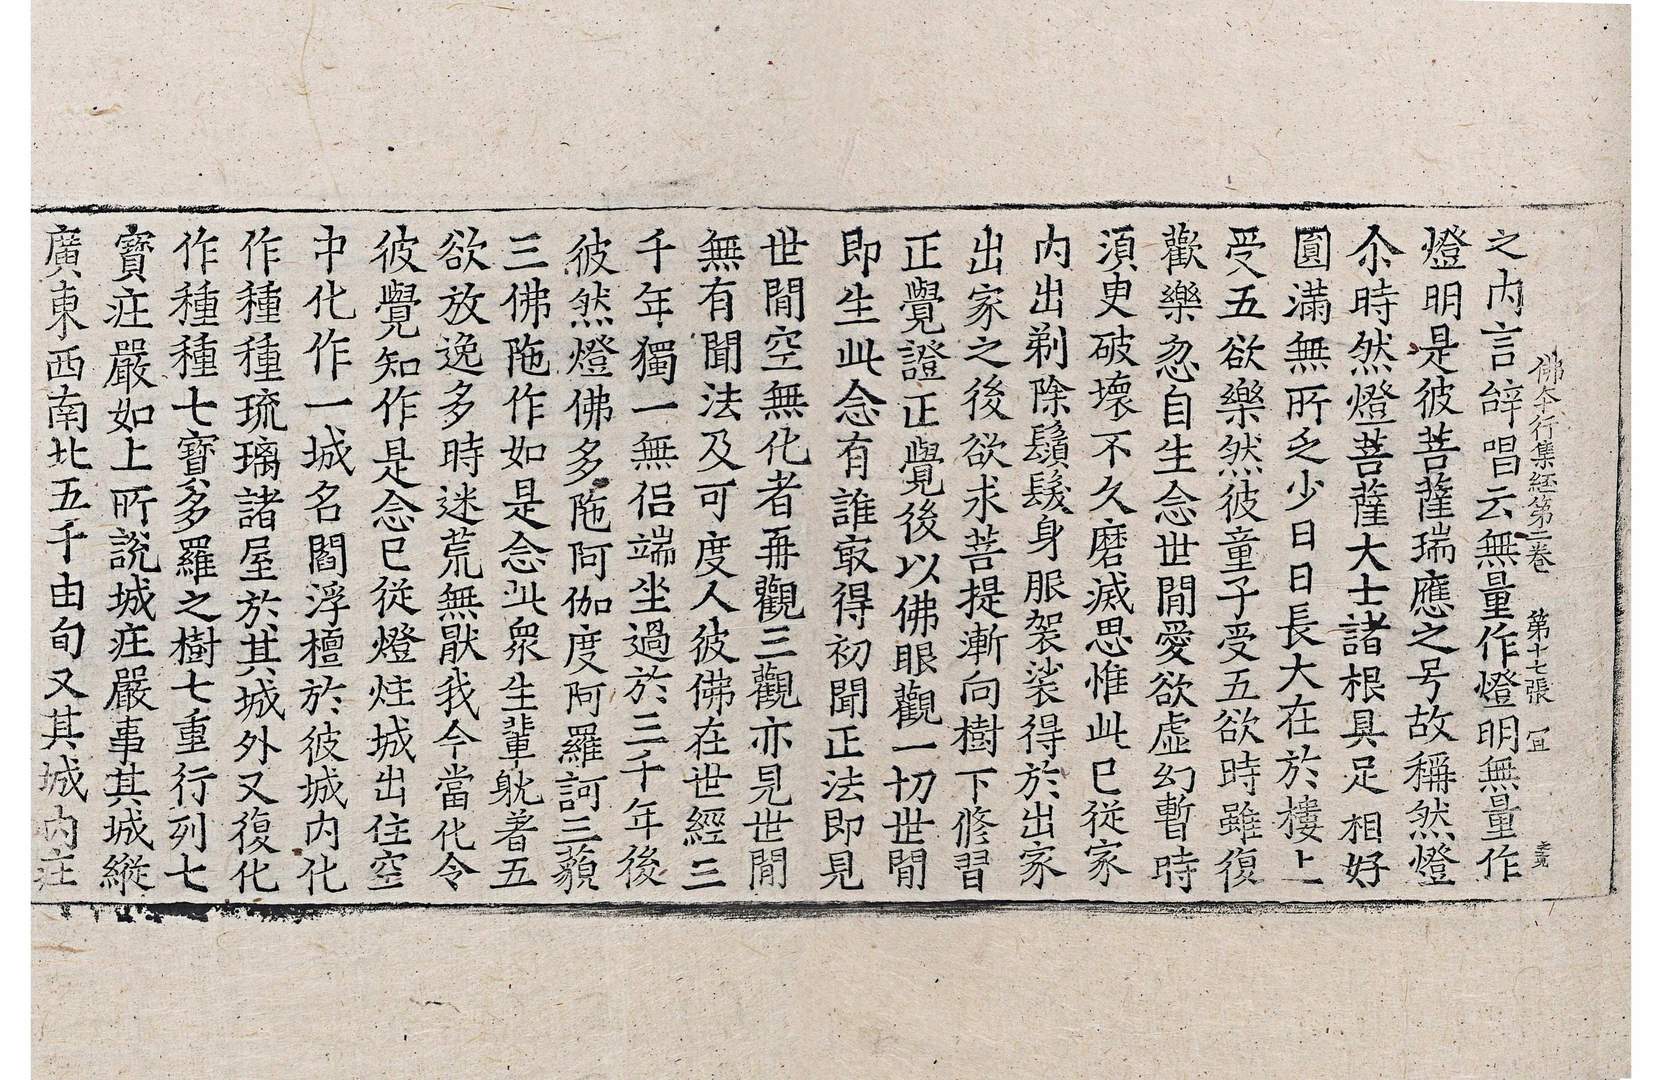 佛本行集経第二巻　第十七張　冝
之内言辝唱云無量作燈明無量作
燈明是彼菩薩瑞應之号故稱然燈
尒時然燈菩薩大士諸根具足相好
圓滿無所乏少日日長大在於樓上
受五欲樂然彼童子受五欲時雖復
歡樂忽自生念世間愛欲虛幻暫時
須臾破壞不久磨滅思惟此已從家
内出剃除鬚髮身服袈裟得於出家
出家之後欲求菩提漸向樹下修習
正覺證正覺後以佛眼觀一切世間
即生此念有誰㝡得初聞正法即見
世間空無化者再觀三觀亦見世間
無有聞法及可度人彼佛在世經三
千年獨一無侣端坐過於三千年後
彼然燈佛多陁阿伽度阿羅訶三藐
三佛陁作如是念此衆生輩躭著五
欲放逸多時迷荒無猒我今當化令
彼覺知作是念已從燈炷城出住空
中化作一城名閻浮檀於彼城内化
作種種琉璃諸屋於其城外又復化
作種種七寶多羅之樹七重行列七
寶莊嚴如上所說城莊嚴事其城縱
廣東西南北五千由旬又其城内莊